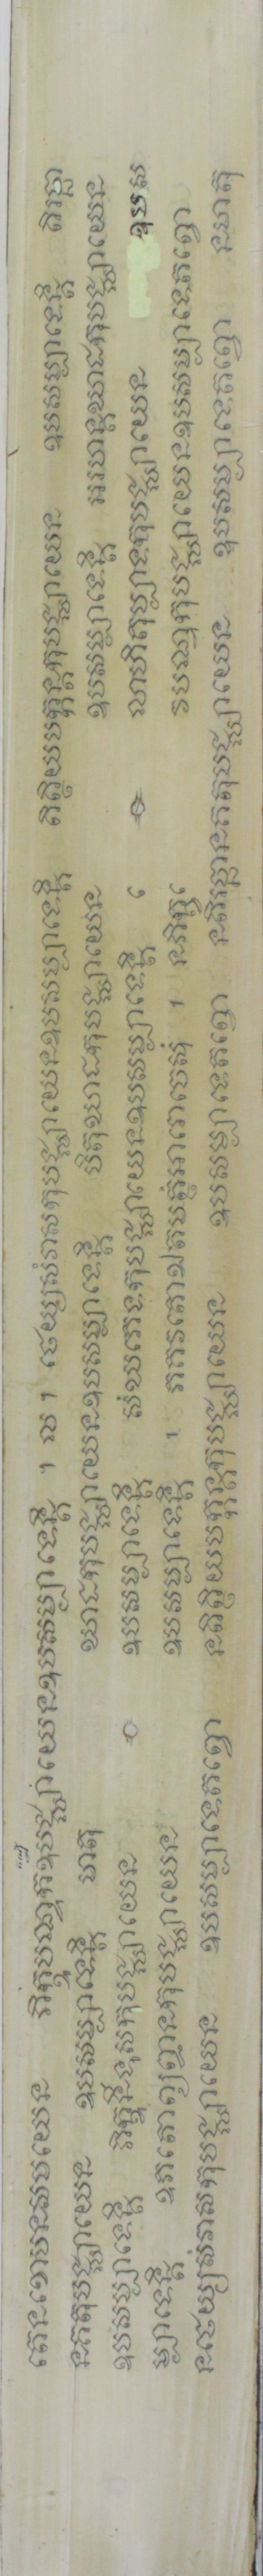 តេនខោបនសមយេន ភិក្ខូបណ្ឌកុបជ្ឈាយេនឧបសម្បាទេន្តិ ។ ល ។ ថេយ្យសំវាសកុបជ្ឈាយេនឧបសម្បាទេន្តិ តិត្ថិយបក្កន្តកុបជ្ឈាយេន ឧបសម្បាទេន្តិ តិរច្ឆា
នគតុបជ្ឈាយេន ឧបសម្បាទេន្តិ មាតុ ឃាដកុបជ្ឈាយេនឧបសម្បាទេន្តិ បិតុឃាដកុបជ្ឈាយេន ឧបសម្បាទេន្តិ អរហន្តឃាដកុបជ្ឈាយេន
ឧបសម្បាទេន្តិ ភិក្ខុនីទុសកុបជ្ឈាយេន ឧបសម្បាទេន្តិ សំឃភេទកុបជ្ឈាយេនឧបសម្បាទេន្តិ លោហិតុប្បាទកុបជ្ឈាយេន ឧបស
ម្បាទេន្តិ ឧភតោព្យញ្ជនកុបជ្ឈាយេន ឧបសម្បាទេន្តិ ។ ភគវតោឯតមត្ថំអារោចេសុំ ។ នភិក្ខវេ បណ្ឌកុបជ្ឈាយេនឧបសម្បាទេតព្វោ
នថេយ្យសំវាសកុបជ្ឈាយេន ឧបសម្បាទេតព្វោ នតិត្ថិយបក្កន្តកុបជ្ឈាយេន ឧបសម្បាទេតព្វោ នតិរច្ឆានគតុបជ្ឈាយេន ឧបសម្បាទេតព្វោ នមាតុ